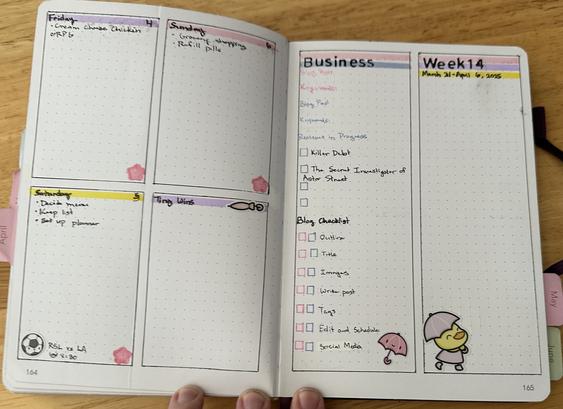 Friday 4
• Cream cheese chicken
• RPG
Sunday 6
• Grocery shopping
• Refill pills
Saturday 5
• Decide menu
• Keep list
• Set up planner
RSL vs LA
@ 8:30
Tiny Wins
164
Business
Blog Post:
Keywords:
Blog Post
Keywords:
Reviews in Progress
Killer Debt
The Secret Investigator of
Astor Street
Blog Checklist
Outline
Title
Images
Write post
Tags
Edit and Schedule
Social Media
Week 14
March 31-April 6, 2025
165
April
May
June